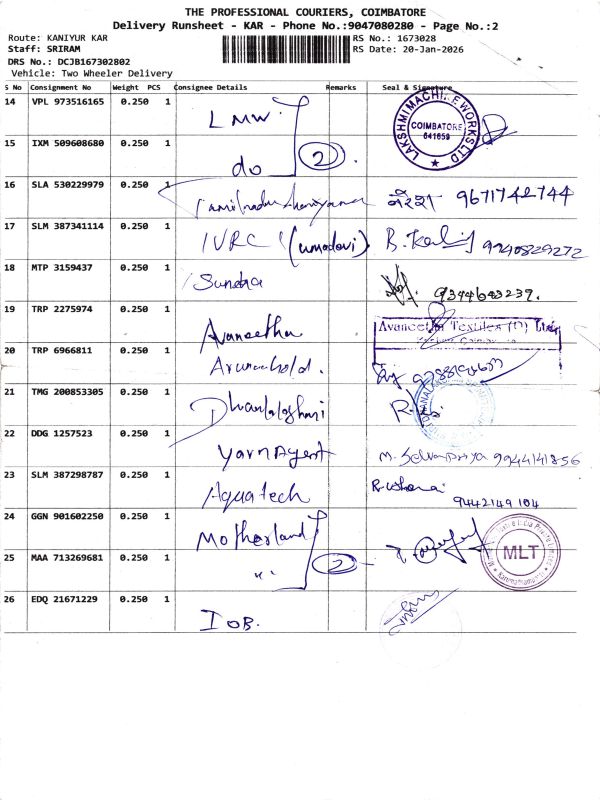 THE PROFESSIONAL COURIERS, COIMBATORE
Delivery Runsheet - KAR - Phone No.:9047080280 - Page No.:2
Route: KANIYUR KAR
RS No.: 1673028
Staff: SRIRAM
RS Date: 20-Jan-2026
DRS No.: DCJB167302802
Vehicle: Two Wheeler Delivery
S No Consignment No Weight PCS Consignee Details Remarks Seal & Signature
14 VPL 973516165 0.250 1 LMW. LAKSHMI MACHINE WORKS LTD COIMBATORE 641659
15 IXM 509608680 0.250 1 do 2
16 SLA 530229979 0.250 1 9671742744
17 SLM 387341114 0.250 1 IVRC (umadevi) 9940829272
18 MTP 3159437 0.250 1 9344643239.
19 TRP 2275974 0.250 1 Avaneetha Avaneetha Textiles (P) Ltd
20 TRP 6966811 0.250 1
21 TMG 200853305 0.250 1
22 DDG 1257523 0.250 1 Yarn Agent 9944141856
23 SLM 387298787 0.250 1 Aquatech 9442149104
24 GGN 901602250 0.250 1 Motherland MLT
25 MAA 713269681 0.250 1 " 2
26 EDQ 21671229 0.250 1 IOB.